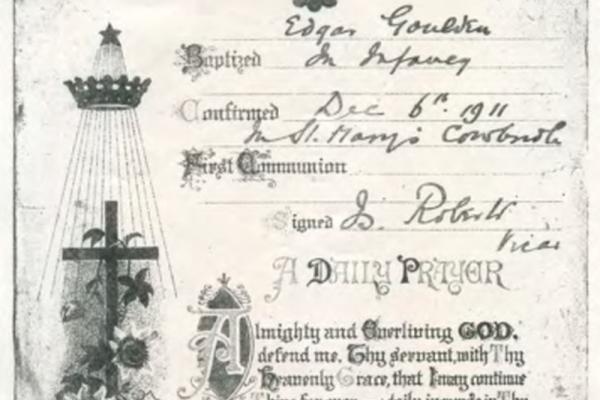 Edgar Goulden
Baptized In Infancy
Confirmed Dec 6th 1911
In St. Mary's Cowbridge
First Communion
Signed Roberts
Vicar
A DAILY PRAYER
Almighty and Everliving GOD,
defend me, Thy servant, with Thy
Heavenly Grace, that I may continue
Thine for ever